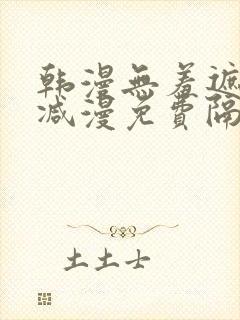 韩漫無羞遮
减漫免費隔
土土士